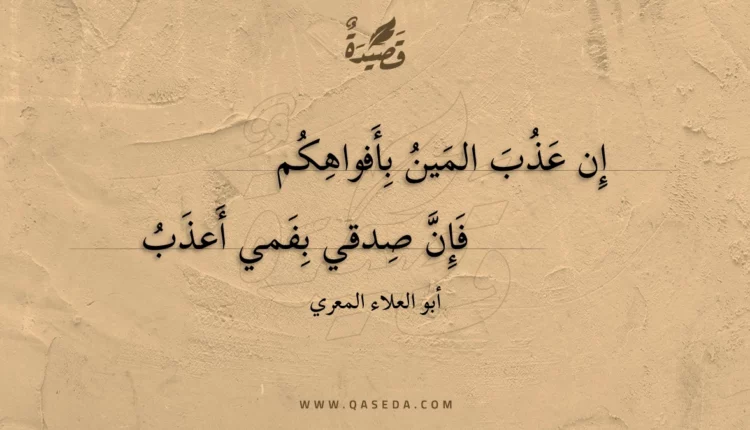 قَصِيدَةٌ
إِن عَذُبَ المَينُ بِأَفواهِكُم
فَإِنَّ صِدقي بِفَمي أَعذَبُ
أبو العلاء المعري
WWW.QASEDA.COM